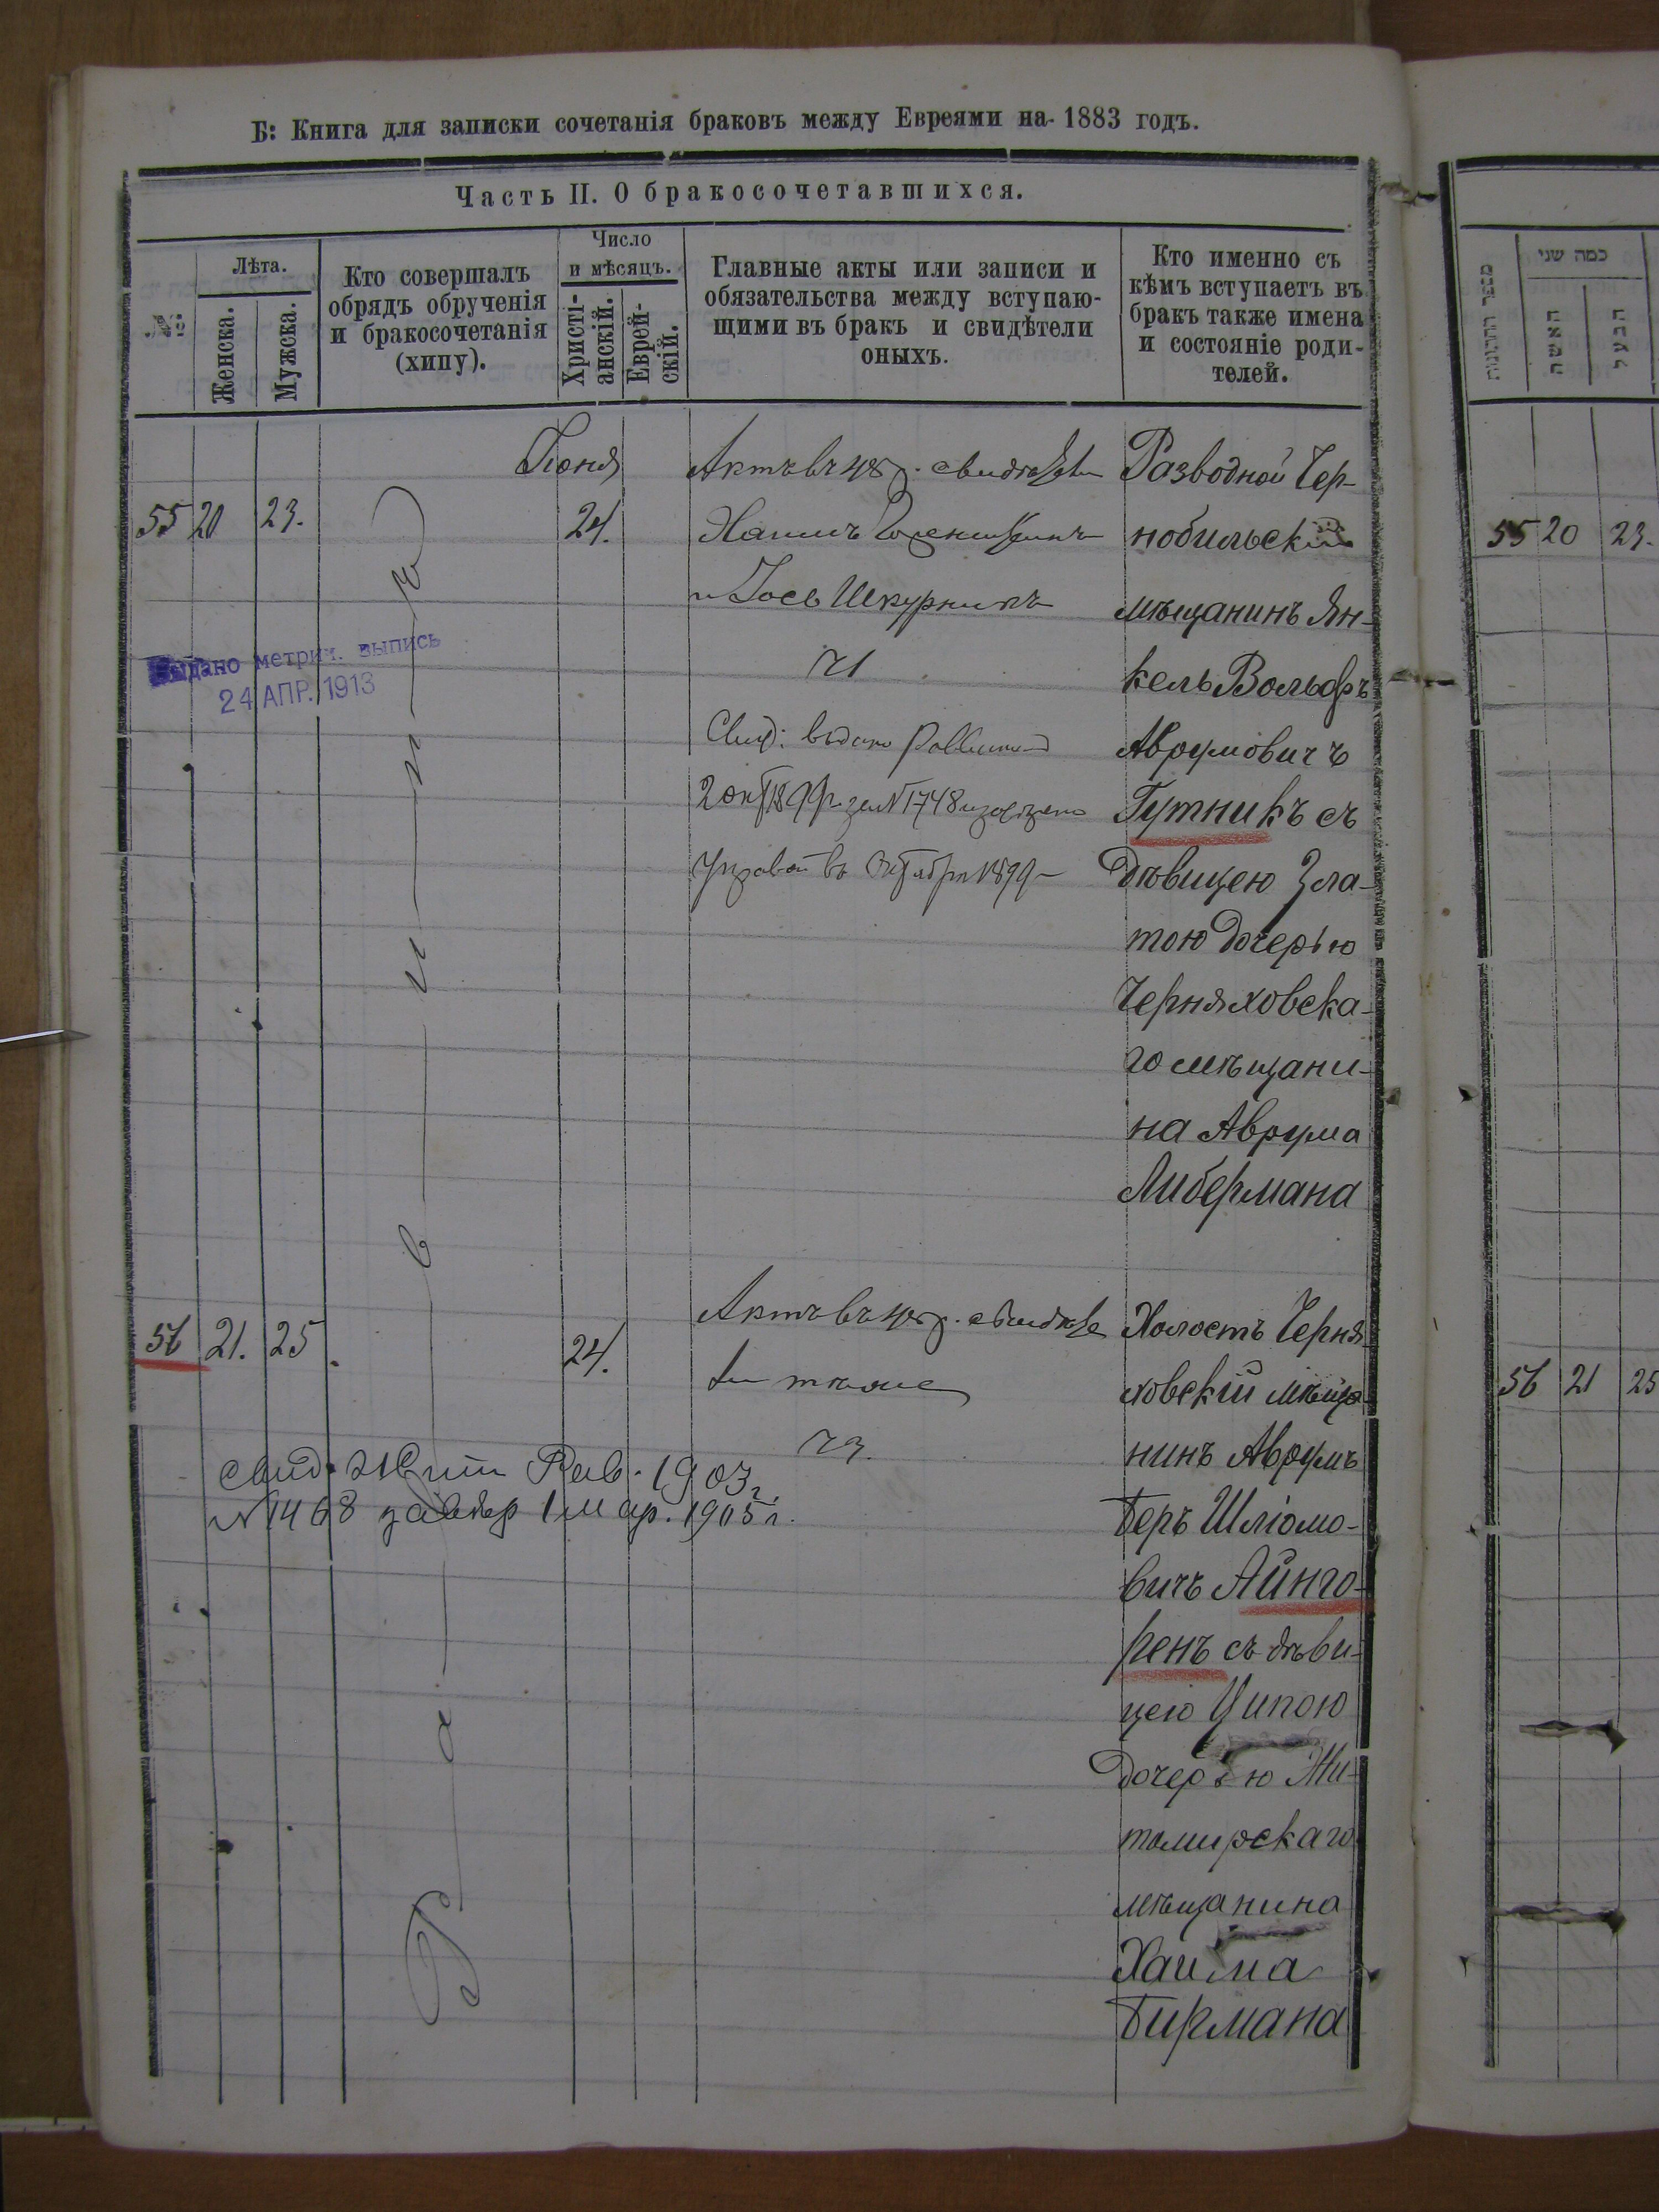 Б: Книга для записки сочетанія браковъ между Евреями на 1883 годъ.
Часть II. О бракосочетавшихся.
№
Лѣта.
Женска.
Мужска.
Кто совершалъ
обрядъ обрученія
и бракосочетанія
(хипу).
Число
и мѣсяцъ.
Христі-
анскій.
Еврей-
скій.
Главные акты или записи и
обязательства между вступаю-
щими въ бракъ и свидѣтели
оныхъ.
Кто именно съ
кѣмъ вступаетъ въ
бракъ также имена
и состояніе роди-
телей.
מספר החתונות
כמה שני
האשה
הבעל
Раввинъ
Іюня
55 20 23. 24.
Актъ въ 48 р. свидѣтели
и Іось Шкурникъ
Ч1
2 окт 1899 г. за № 1748
въ Октябрѣ 1899
Разводной Чер-
нобильскій
мѣщанинъ Ян-
кель Вольфъ
Аврумовичъ
Гутникъ съ
дѣвицею Зла-
тою дочерью
Черняховска-
го мѣщани-
на Аврума
Либермана
Выдано метрич. выпись
24 АПР. 1913
56 21. 25. 24.
Актъ въ 48 р. свидѣте
ли тѣже
Ч3.
Холостъ Черня
ховскій мѣща
нинъ Аврумъ
Беръ Шліомо-
вичъ Айнго-
ренъ съ дѣви-
цею Ципою
дочерью Жи-
томирскаго
мѣщанина
Хаима
Бирмана
Свид. Жит Рав. 1903 г.
№ 1468 1 Мар. 1905 г.
55 20 23.
56 21 25